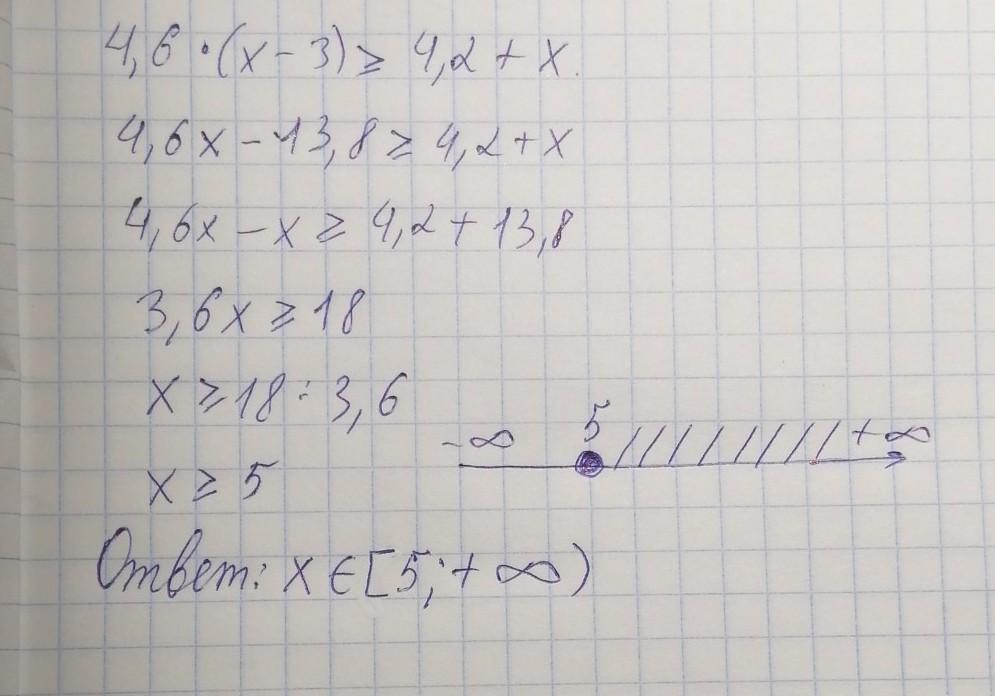 4,6 · (x − 3) ⩾ 4,2 + x.
4,6x − 13,8 ⩾ 4,2 + x
4,6x − x ⩾ 4,2 + 13,8
3,6x ⩾ 18
x ⩾ 18 : 3,6
x ⩾ 5
−∞ 5 +∞
Ответ: x ∈ [5; +∞)